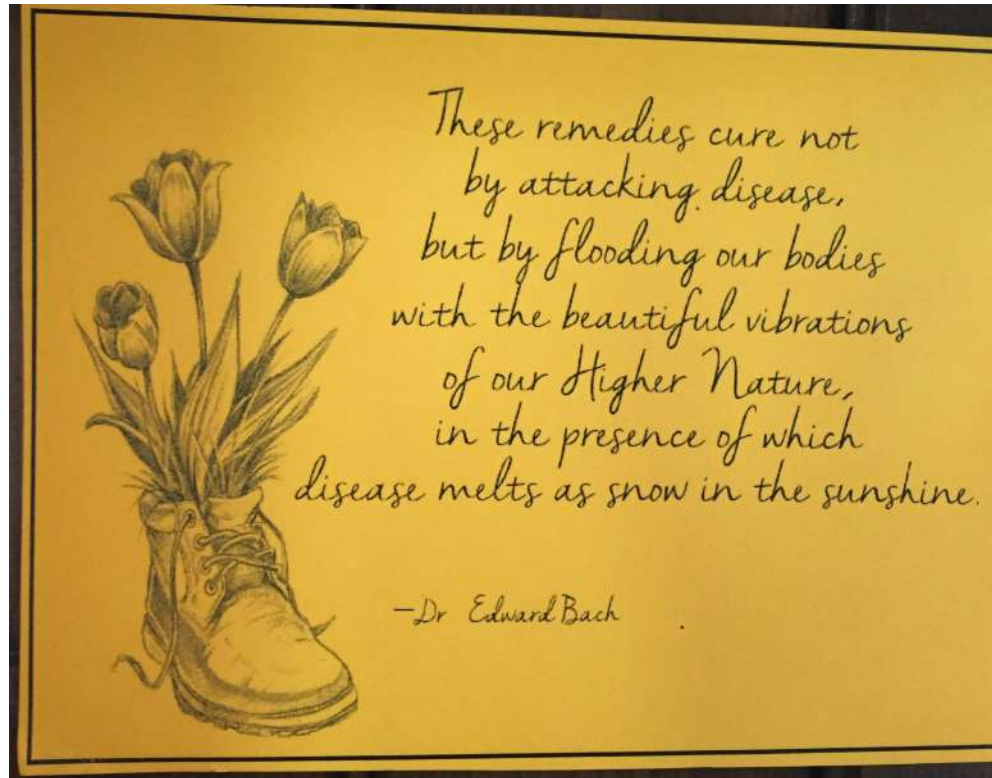 These remedies cure not
by attacking disease,
but by flooding our bodies
with the beautiful vibrations
of our Higher Nature,
in the presence of which
disease melts as snow in the sunshine.
—Dr Edward Bach